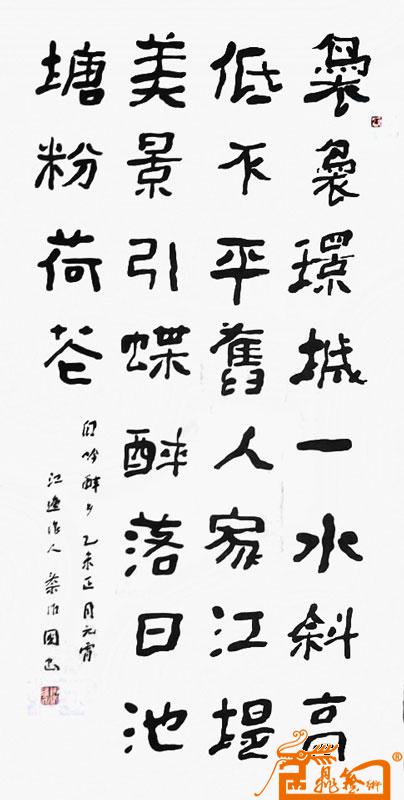 裊裊環城一水斜高
低不平舊人家江堤
美景引蝶醉落日池
塘粉荷花
吟醉乡 乙未正月元宵
江邊人 蔡治國书